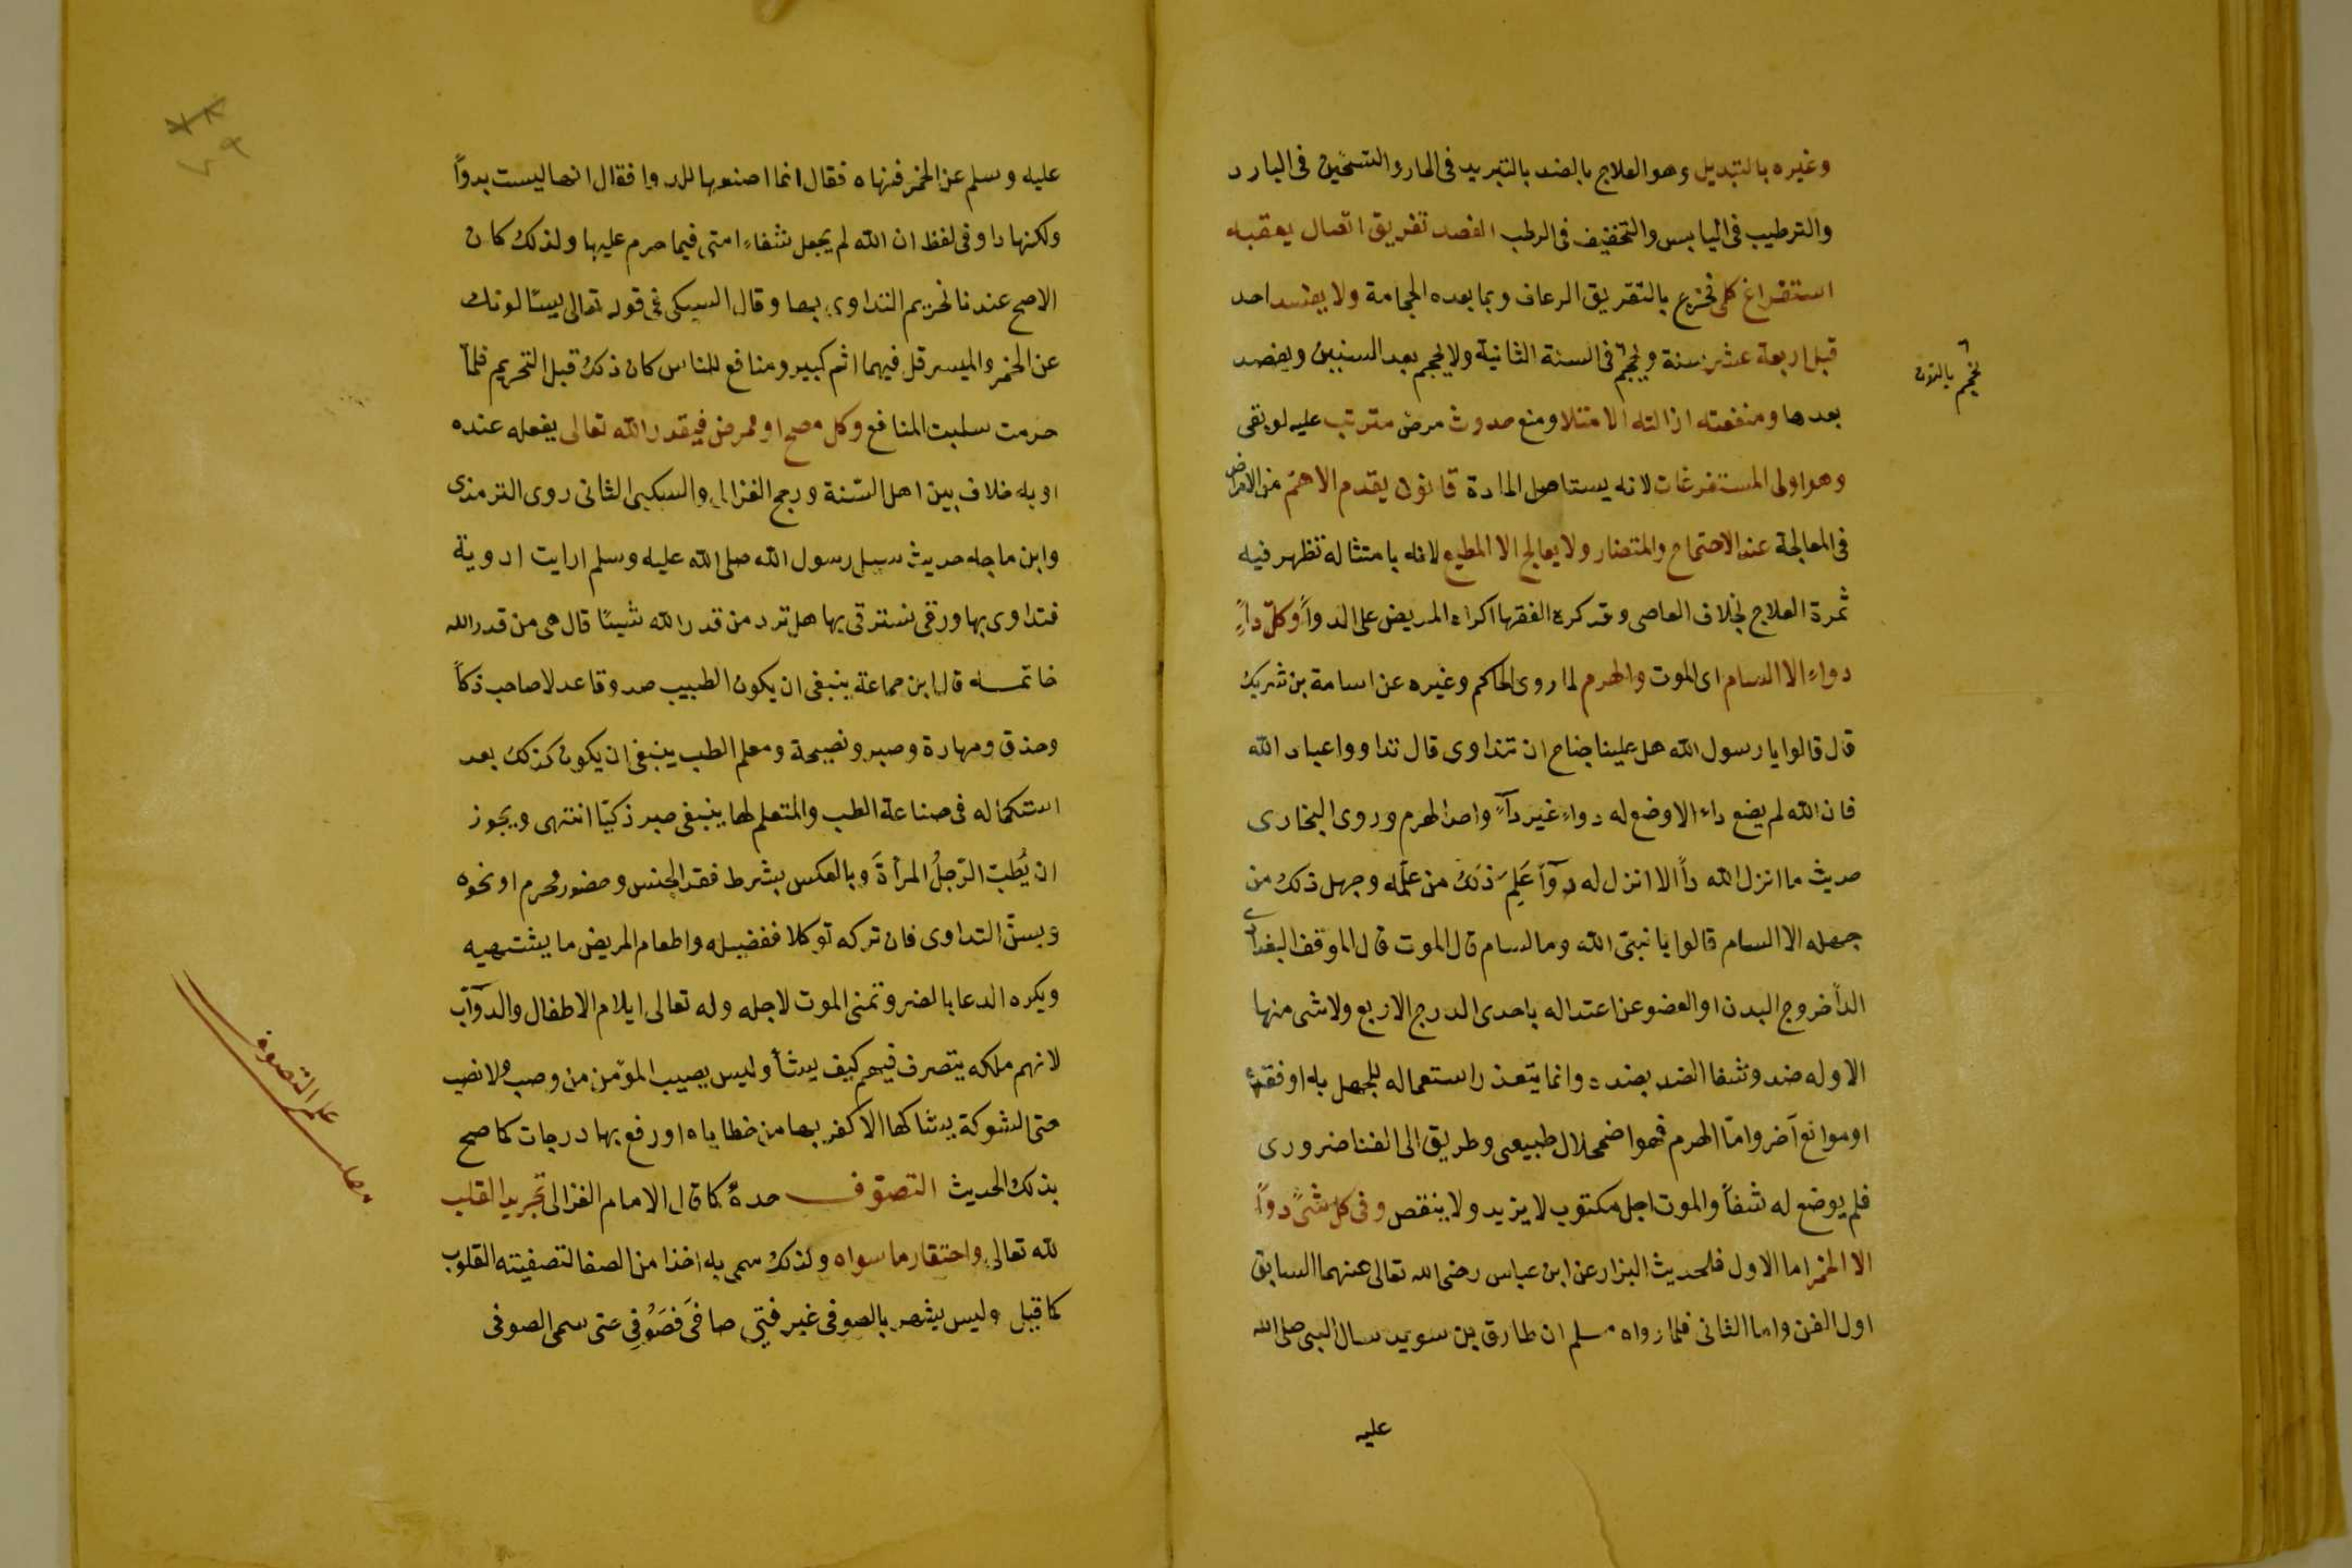 وغيره بالتبديل وهو العلاج بالضد بالتبريد فى الحار والتسخين فى البارد
والترطيب فى اليابس والتخفيف فى الرطب الفصد تفريق اتصال يعقبه
استفراغ كلى فخرج بالتفريق الرعاف وبما بعده الحجامة ولا يفصد احد
قبل اربعة عشر سنة ويحجم فى السنة الثانية ولا يحجم بعد الستين ويفصد
يحجم بالنون
بعدها ومنفعته ازالته الامتلا ومنع حدوث مرض مترتب عليه لو بقى
وهو اولى المستفرغات لانه يستاصل المادة قانون يقدم الاهم من الامراض
فى المعالجة عند الاجتماح والمتضار ولا يعالج الا المطيع لانه بامتثاله تظهر فيه
ثمرة العلاج بخلاف العاصى وقد كره الفقها اكراه المريض على الدوآ وكل دآء
دواء الا السام اى الموت والهرم لما روى الحاكم وغيره عن اسامة بن شريك
قال قالوا يا رسول الله هل علينا جناح ان نتداوى قال تداووا عباد الله
فان الله لم يضع داء الا وضع له دواء غير دآء واحد الهرم وروى البخارى
حديث ما انزل الله دآ الا انزل له دوآ عَلِمَ ذلك من علمه وجهل ذلك من
جهله الا السام قالوا يا نبى الله وما السام قال الموت قال الموفق البغدادى
الدآ خروج البدن او العضو عن اعتداله باحدى الدرج الاربع ولا شى منها
الا وله ضد وشفا الضد بضده وانما يتعذر استعماله للجهل به او فقده
او موانع آخر وامّا الهرم فهو اضمحلال طبيعى وطريق الى الفنا ضرورى
فلم يوضع له شفآ والموت اجل مكتوب لا يزيد ولا ينقص وفى كل شئ دوآ
الا الخمر اما الاول فلحديث البزار عن ابن عباس رضى الله تعالى عنهما السابق
اول الفن واما الثانى فلما رواه مسلم ان طارق بن سويد سال النبى صلى الله
عليه
عليه وسلم عن الخمر فنهاه فقال انما اصنعها للدوا فقال انها ليست بدوآ
ولكنها دا وفى لفظ ان الله لم يجعل شفاء امتى فيما حرم عليها ولذلك كان
الاصح عندنا تحريم التداوى بها وقال السبكى فى قوله تعالى يسئالونك
عن الخمر والميسر قل فيهما اثم كبير ومنافع للناس كان ذلك قبل التحريم فلمّا
حرمت سلبت المنافع وكل مصح او ممرض فبقدر الله تعالى يفعله عنده
او به خلاف بين اهل السّنة ورجح الغزالى والسبكى الثانى روى الترمذى
وابن ماجه حديث سيل رسول الله صلى الله عليه وسلم ارايت ادوية
نتداوى بها ورقى نسترقى بها هل ترد من قدر الله شيئا قال هى من قدر الله
خاتمـــه قال ابن جماعة ينبغى ان يكون الطبيب صدوقا عدلا صاحب ذكآ
وحذق ومهارة وصبر ونصيحة ومعلم الطب ينبغى ان يكون كذلك بعد
استكماله فى صناعة الطب والمتعلم لها ينبغى صبر ذكيّا انتهى ويجوز
ان يُطبّ الرّجلُ المرأةَ وبالعكس بشرط فقد الجنس وحضور محرم او نحوه
ويسنّ التداوى فان تركه توكلا ففضيله واطعام المريض ما يشتهيه
ويكره الدعا بالضر وتمنى الموت لاجله وله تعالى ايلام الاطفال والدوآبّ
لانهم ملكه يتصرف فيهم كيف يشآ وليس يصيب المؤمن من وصب ولا نصب
حتى الشوكة يشاكها الا كفر بها من خطاياه او رفع بها درجات كما صح
بذلك الحديث التصوّف حدهُ كما قال الامام الغزالى تجريد القلب
لله تعالى واحتقار ما سواه ولذلك سمى به اخذا من الصفا لتصفيته القلوب
كما قيل وليس يشهر بالصوفى غير فتى صافَى فَصُوفِى حتى سمى الصوفى
مطلب علم التصوف
٧٩